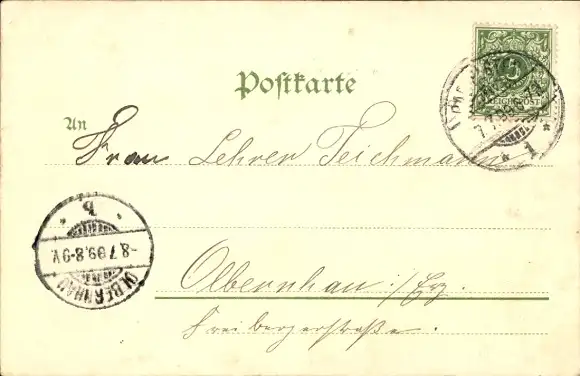 Postkarte
REICHSPOST
An
Frau Lehrer Teichmann
Olbernhau i/Erz.
Freibergerstraße.
OLBERNHAU
-8.7.99.8-9V.
b
1